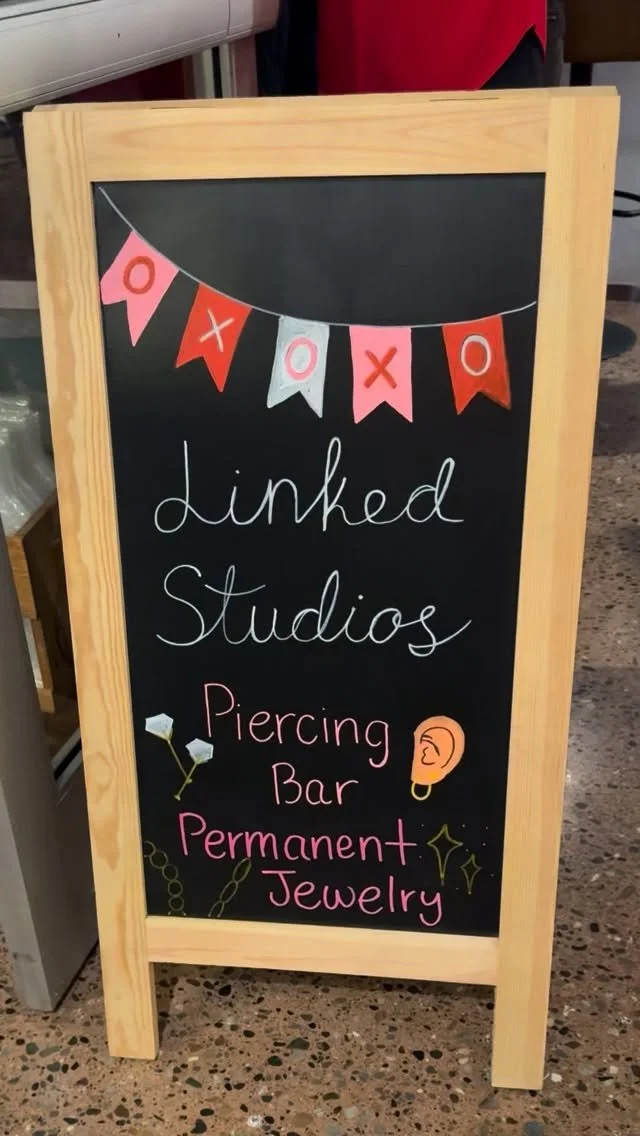 OXOXO
Linked
Studios
Piercing
Bar
Permanent
Jewelry